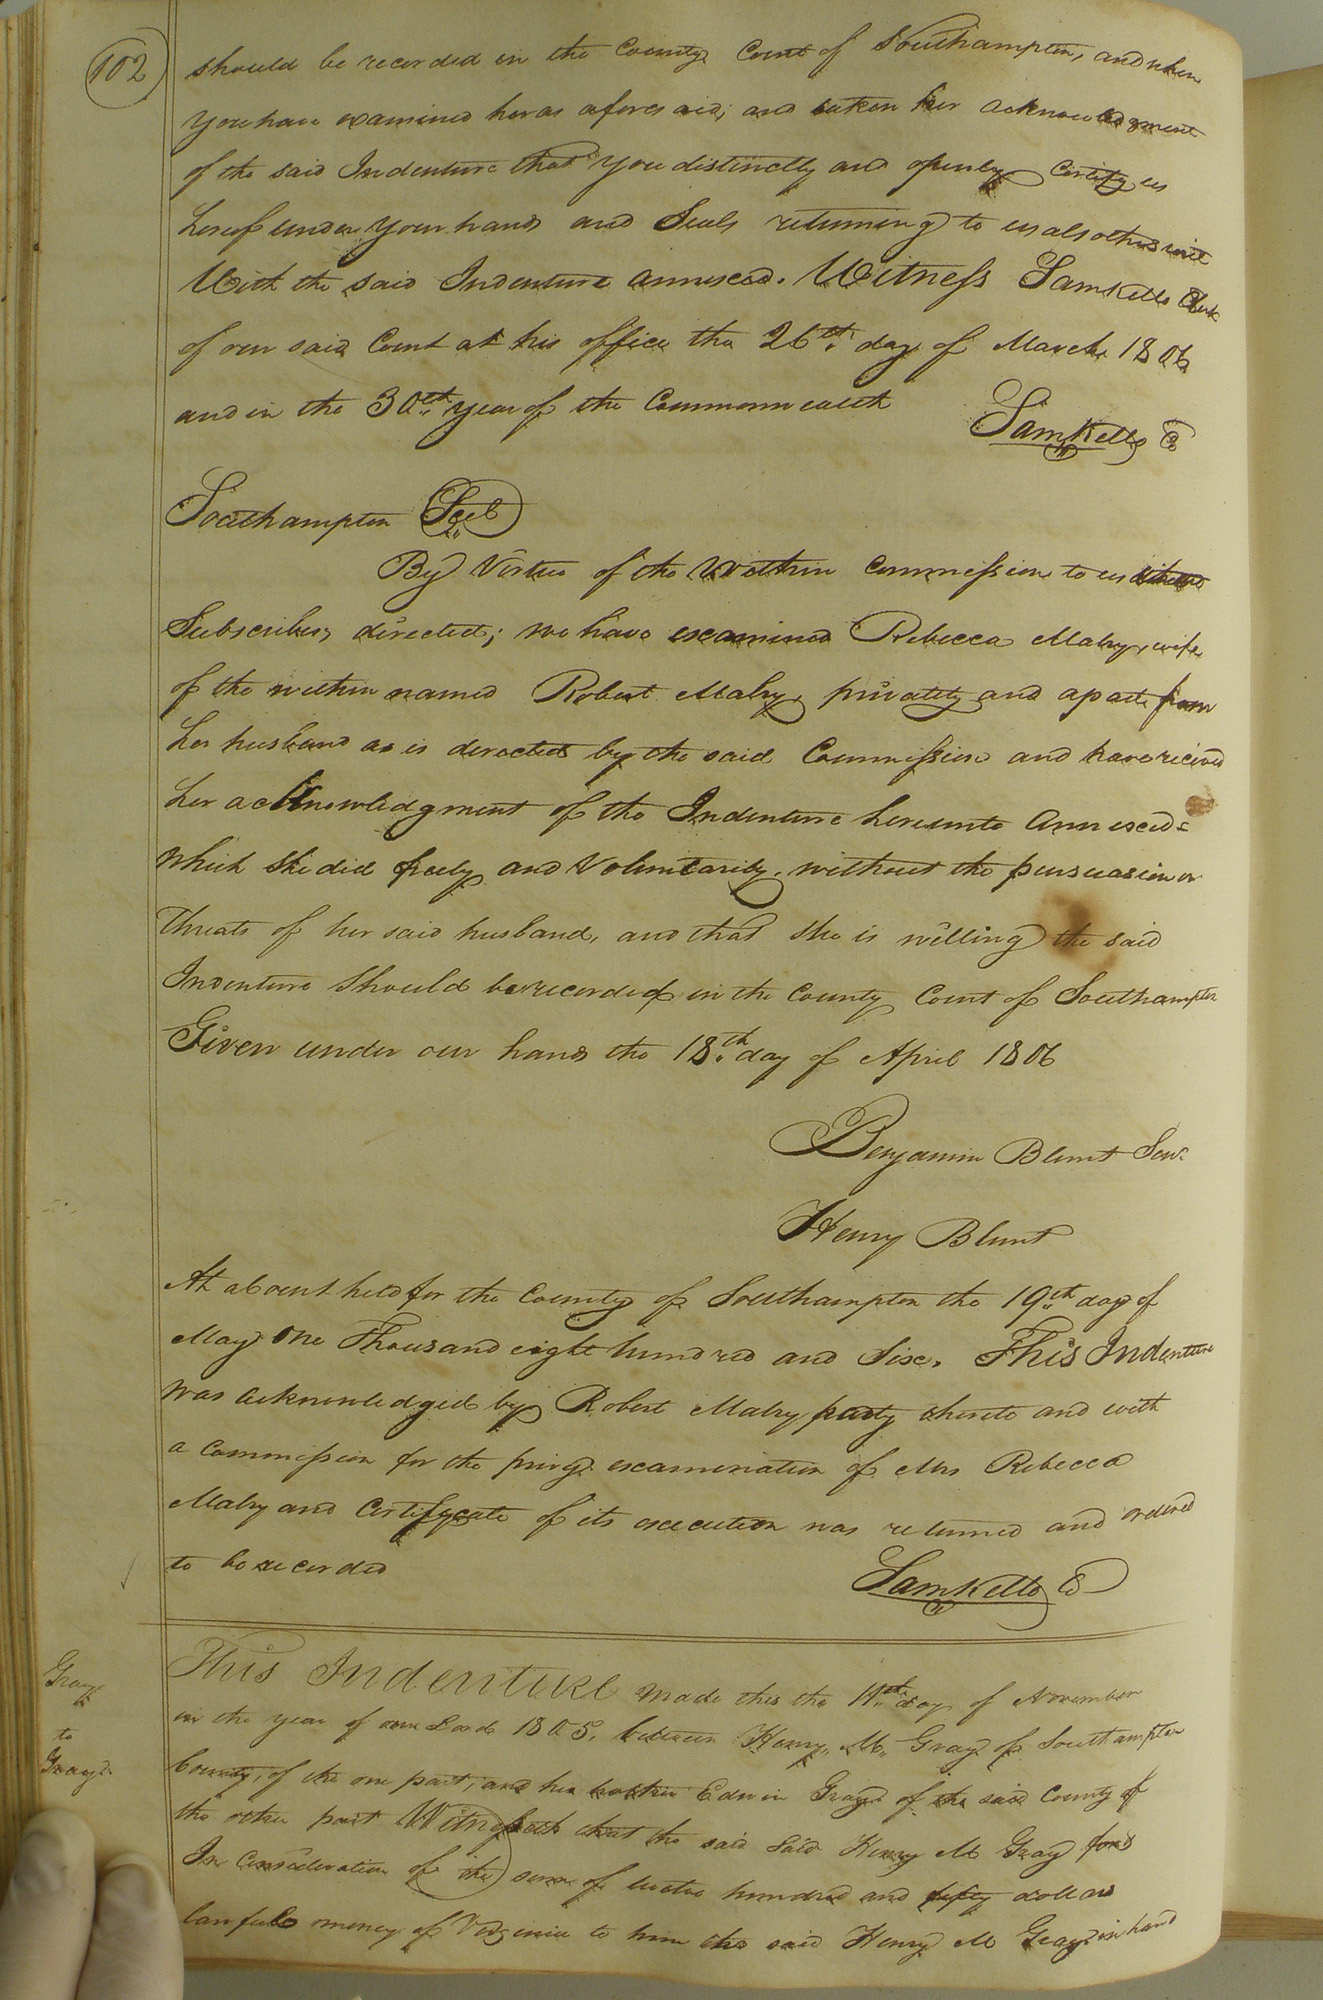 102
should be recorded in the County Court of Southampton, and when
you have examined her as aforesaid; and taken her acknowledgment
of the said Indenture that you distinctly and openly certify us
hereof under your hands and Seals returning to us also this writ
With the said Indenture annexed. Witness Saml Kello Clerk
of our said Court at his office the 26th. day of March 1806
and in the 30th. year of the Commonwealth
Saml Kello C
Southampton Sct
By Virtue of the Within Commission to us
Subscribers directed; we have examined Rebecca Mabry, wife
of the within named Robert Mabry, privately and apart from
her husband as is directed by the said Commission and have received
her acknowledgment of the Indenture hereunto annexed =
which she did freely and Voluntarily, without the persuasion or
Threats of her said husband, and that she is willing the said
Indenture Should be recorded in the County Court of Southampton
Given under our hands the 18th. day of April 1806
Benjamin Blunt Senr.
Henry Blunt
At a Court held for the County of Southampton the 19th. day of
May One Thousand eight hundred and Six. This Indenture
was acknowledged by Robert Mabry party thereto and with
a Commission for the privy examination of Mrs Rebecca
Mabry and Certifycate of its execution was returned and ordered
to be recorded
Saml Kello C
Gray
to
Gray
This Indenture made this the 11th. day of November
in the year of our Lord 1805, between Henry M. Gray of Southampton
County, of the one part, and his brother Edwin Gray of the said County of
the other part Witnesseth that the said Said Henry M Gray for &
In Consideration of the sum of hundred and fifty dollars
lawfull money of Virginia to him the said Henry M Gray in hand